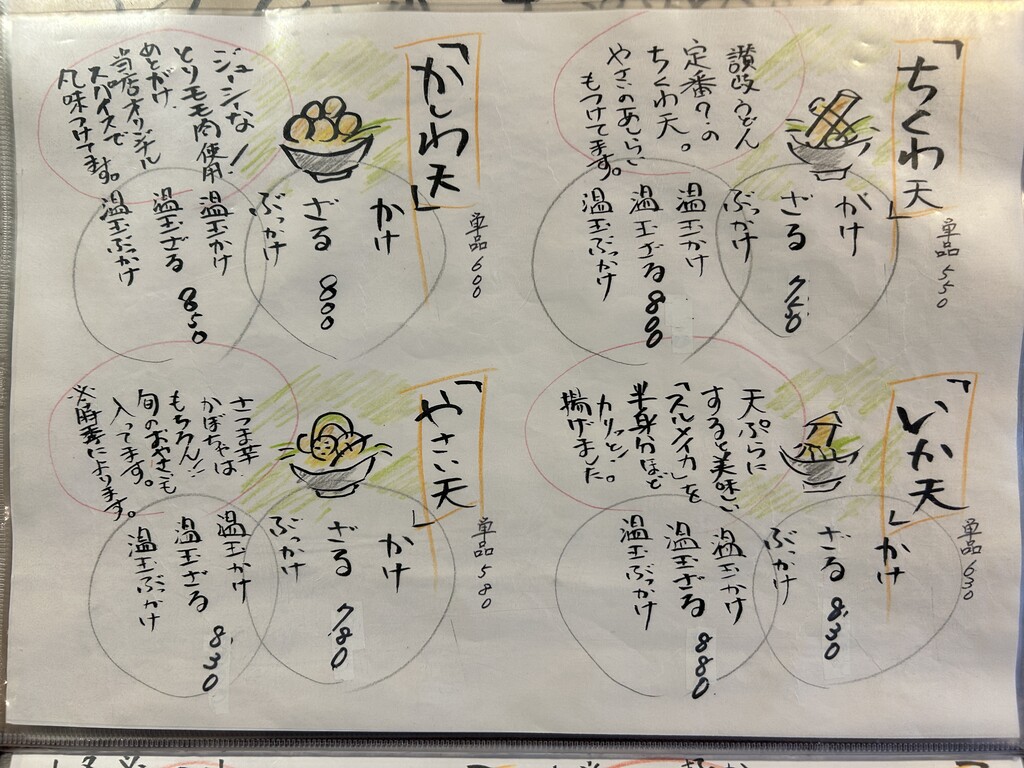 「ちくわ天」
単品550
讃岐うどん
定番?の
ちくわ天。
やさいのあしらい
もつけてます。
かけ
ざる 750
ぶっかけ
温玉かけ
温玉ざる 800
温玉ぶっかけ
「かしわ天」
単品600
ジューシーな!
とりモモ肉使用!
あとがけ
当店オリジナル
スパイスで
凡味つけてます。
かけ
ざる 800
ぶっかけ
温玉かけ
温玉ざる 850
温玉ぶっかけ
「いか天」
単品630
天ぷらに
すると美味い
「スルメイカ」を
半身分ほど
カリッと!
揚げました。
かけ
ざる 830
ぶっかけ
温玉かけ
温玉ざる 880
温玉ぶっかけ
「やさい天」
単品580
さつま芋
かぼちゃは
もちろん!!
旬のおやさいも
入ってます。
によります。
かけ
ざる 780
ぶっかけ
温玉かけ
温玉ざる 830
温玉ぶっかけ